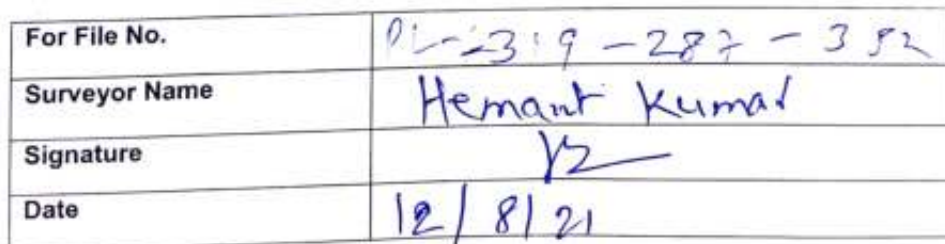 For File No.
Surveyor Name Hemant Kumar
Signature
Date 12/8/21